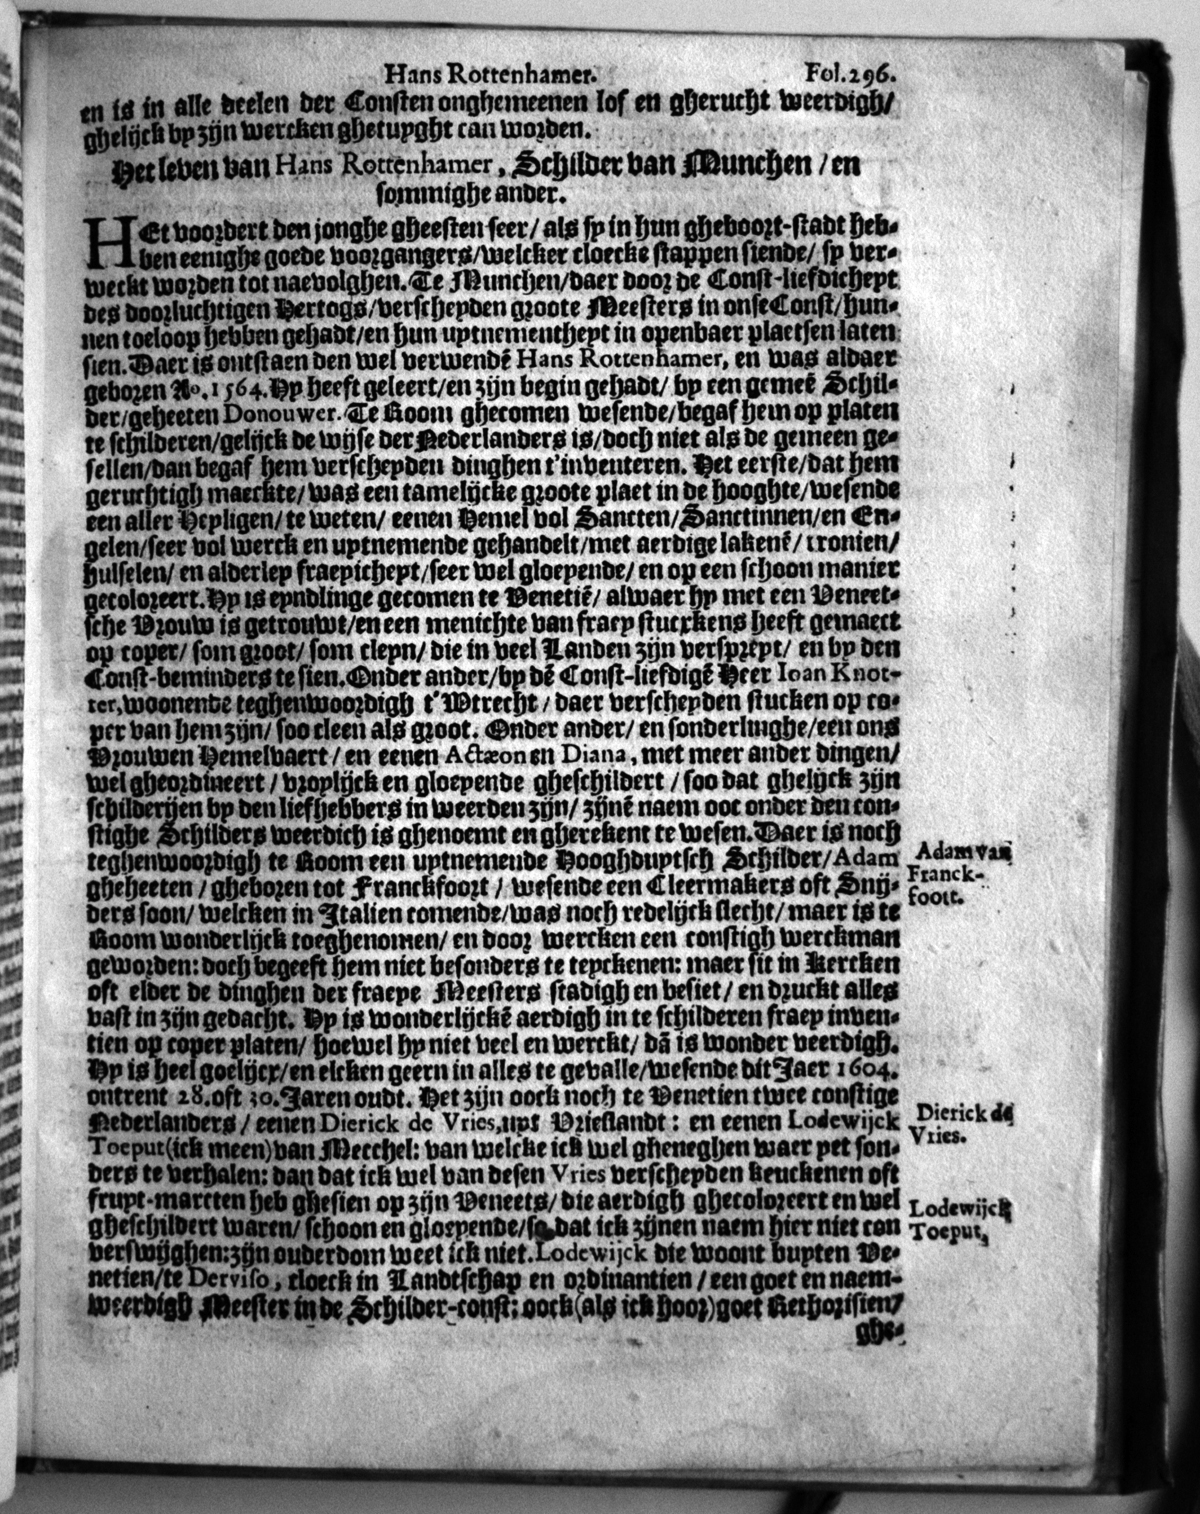 Hans Rottenhamer. Fol. 296.
en is in alle deelen der Consten onghemeenen lof en gherucht weerdigh/
ghelijck by zijn wercken ghetuyght can worden.
Het leven van Hans Rottenhamer, Schilder van Munchen / en
sommighe ander.
HEt voordert den jonghe gheesten seer/ als sy in hun gheboort-stadt heb-
ben eenighe goede voorgangers/ welcker cloecke stappen siende/ sy ver-
weckt worden tot naevolghen. Te Munchen/ daer door de Const-liefdicheyt
des doorluchtigen Hertogs/ verscheyden groote Meesters in onse Const/ hun-
nen toeloop hebben gehadt/ en hun uytnementheyt in openbaer plaetsen laten
sien. Daer is ontstaen den wel verwendē Hans Rottenhamer, en was aldaer
geboren Ao. 1564. Hy heeft geleert/ en zijn begin gehadt/ by een gemeē Schil-
der/ geheeten Donouwer. Te Room ghecomen wesende/ begaf hem op platen
te schilderen/ gelijck de wijse der Nederlanders is/ doch niet als de gemeen ge-
sellen/ dan begaf hem verscheyden dinghen t'inventeren. Het eerste/ dat hem
geruchtigh maeckte/ was een tamelijcke groote plaet in de hooghte/ wesende
een aller Heyligen/ te weten/ eenen Hemel vol Sancten/ Sanctinnen/ en En-
gelen/ seer vol werck en uytnemende gehandelt/ met aerdige lakenē/ tronien/
hulselen/ en alderley fraeyicheyt/ seer wel gloeyende/ en op een schoon manier
gecoloreert. Hy is eyndlinge gecomen te Venetiē/ alwaer hy met een Veneet-
sche Vrouw is getrouwt/ en een menichte van fraey stucxkens heeft gemaect
op coper/ som groot/ som cleyn/ die in veel Landen zijn verspreyt/ en by den
Const-beminders te sien. Onder ander/ by dē Const-liefdigē Heer Ioan Knot-
ter, woonende teghenwoordigh t'Wtrecht/ daer verscheyden stucken op co-
per van hem zijn/ soo cleen als groot. Onder ander/ en sonderlinghe/ een ons
Vrouwen Hemelvaert/ en eenen Actæon en Diana, met meer ander dingen/
wel gheordineert/ vroylijck en gloeyende gheschildert/ soo dat ghelijck zijn
schilderijen by den liefhebbers in weerden zijn/ zijnē naem ooc onder den con-
stighe Schilders weerdich is ghenoemt en gherekent te wesen. Daer is noch
teghenwoordigh te Room een uytnemende Hooghduytsch Schilder/ Adam
gheheeten/ gheboren tot Franckfoort/ wesende een Cleermakers oft Snij-
ders soon/ welcken in Italien comende/ was noch redelijck slecht/ maer is te
Room wonderlijck toeghenomen/ en door wercken een constigh werckman
geworden: doch begeeft hem niet besonders te teyckenen: maer sit in Kercken
oft elder de dinghen der fraeye Meesters stadigh en besiet/ en druckt alles
vast in zijn gedacht. Hy is wonderlijckē aerdigh in te schilderen fraey inven-
tien op coper platen/ hoewel hy niet veel en werckt/ dā is wonder veerdigh.
Hy is heel goelijcx/ en elcken geern in alles te gevalle/ wesende dit Jaer 1604.
ontrent 28. oft 30. Jaren oudt. Het zijn oock noch te Venetien twee constige
Nederlanders/ eenen Dierick de Vries, uyt Vrieslandt: en eenen Lodewijck
Toeput (ick meen) van Mecchel: van welcke ick wel gheneghen waer yet son-
ders te verhalen: dan dat ick wel van desen Vries verscheyden keuckenen oft
fruyt-marcten heb ghesien op zijn Veneets/ die aerdigh ghecoloreert en wel
gheschildert waren/ schoon en gloeyende/ so dat ick zijnen naem hier niet con
verswijghen: zijn ouderdom weet ick niet. Lodewijck die woont buyten Ve-
netien/ te Derviso, cloeck in Landtschap en ordinantien/ een goet en naem-
weerdigh Meester in de Schilder-const: oock (als ick hoor) goet Rethorisien/
ghe-
Adam van
Franck-
foort.
Dierick de
Vries.
Lodewijck
Toeput,